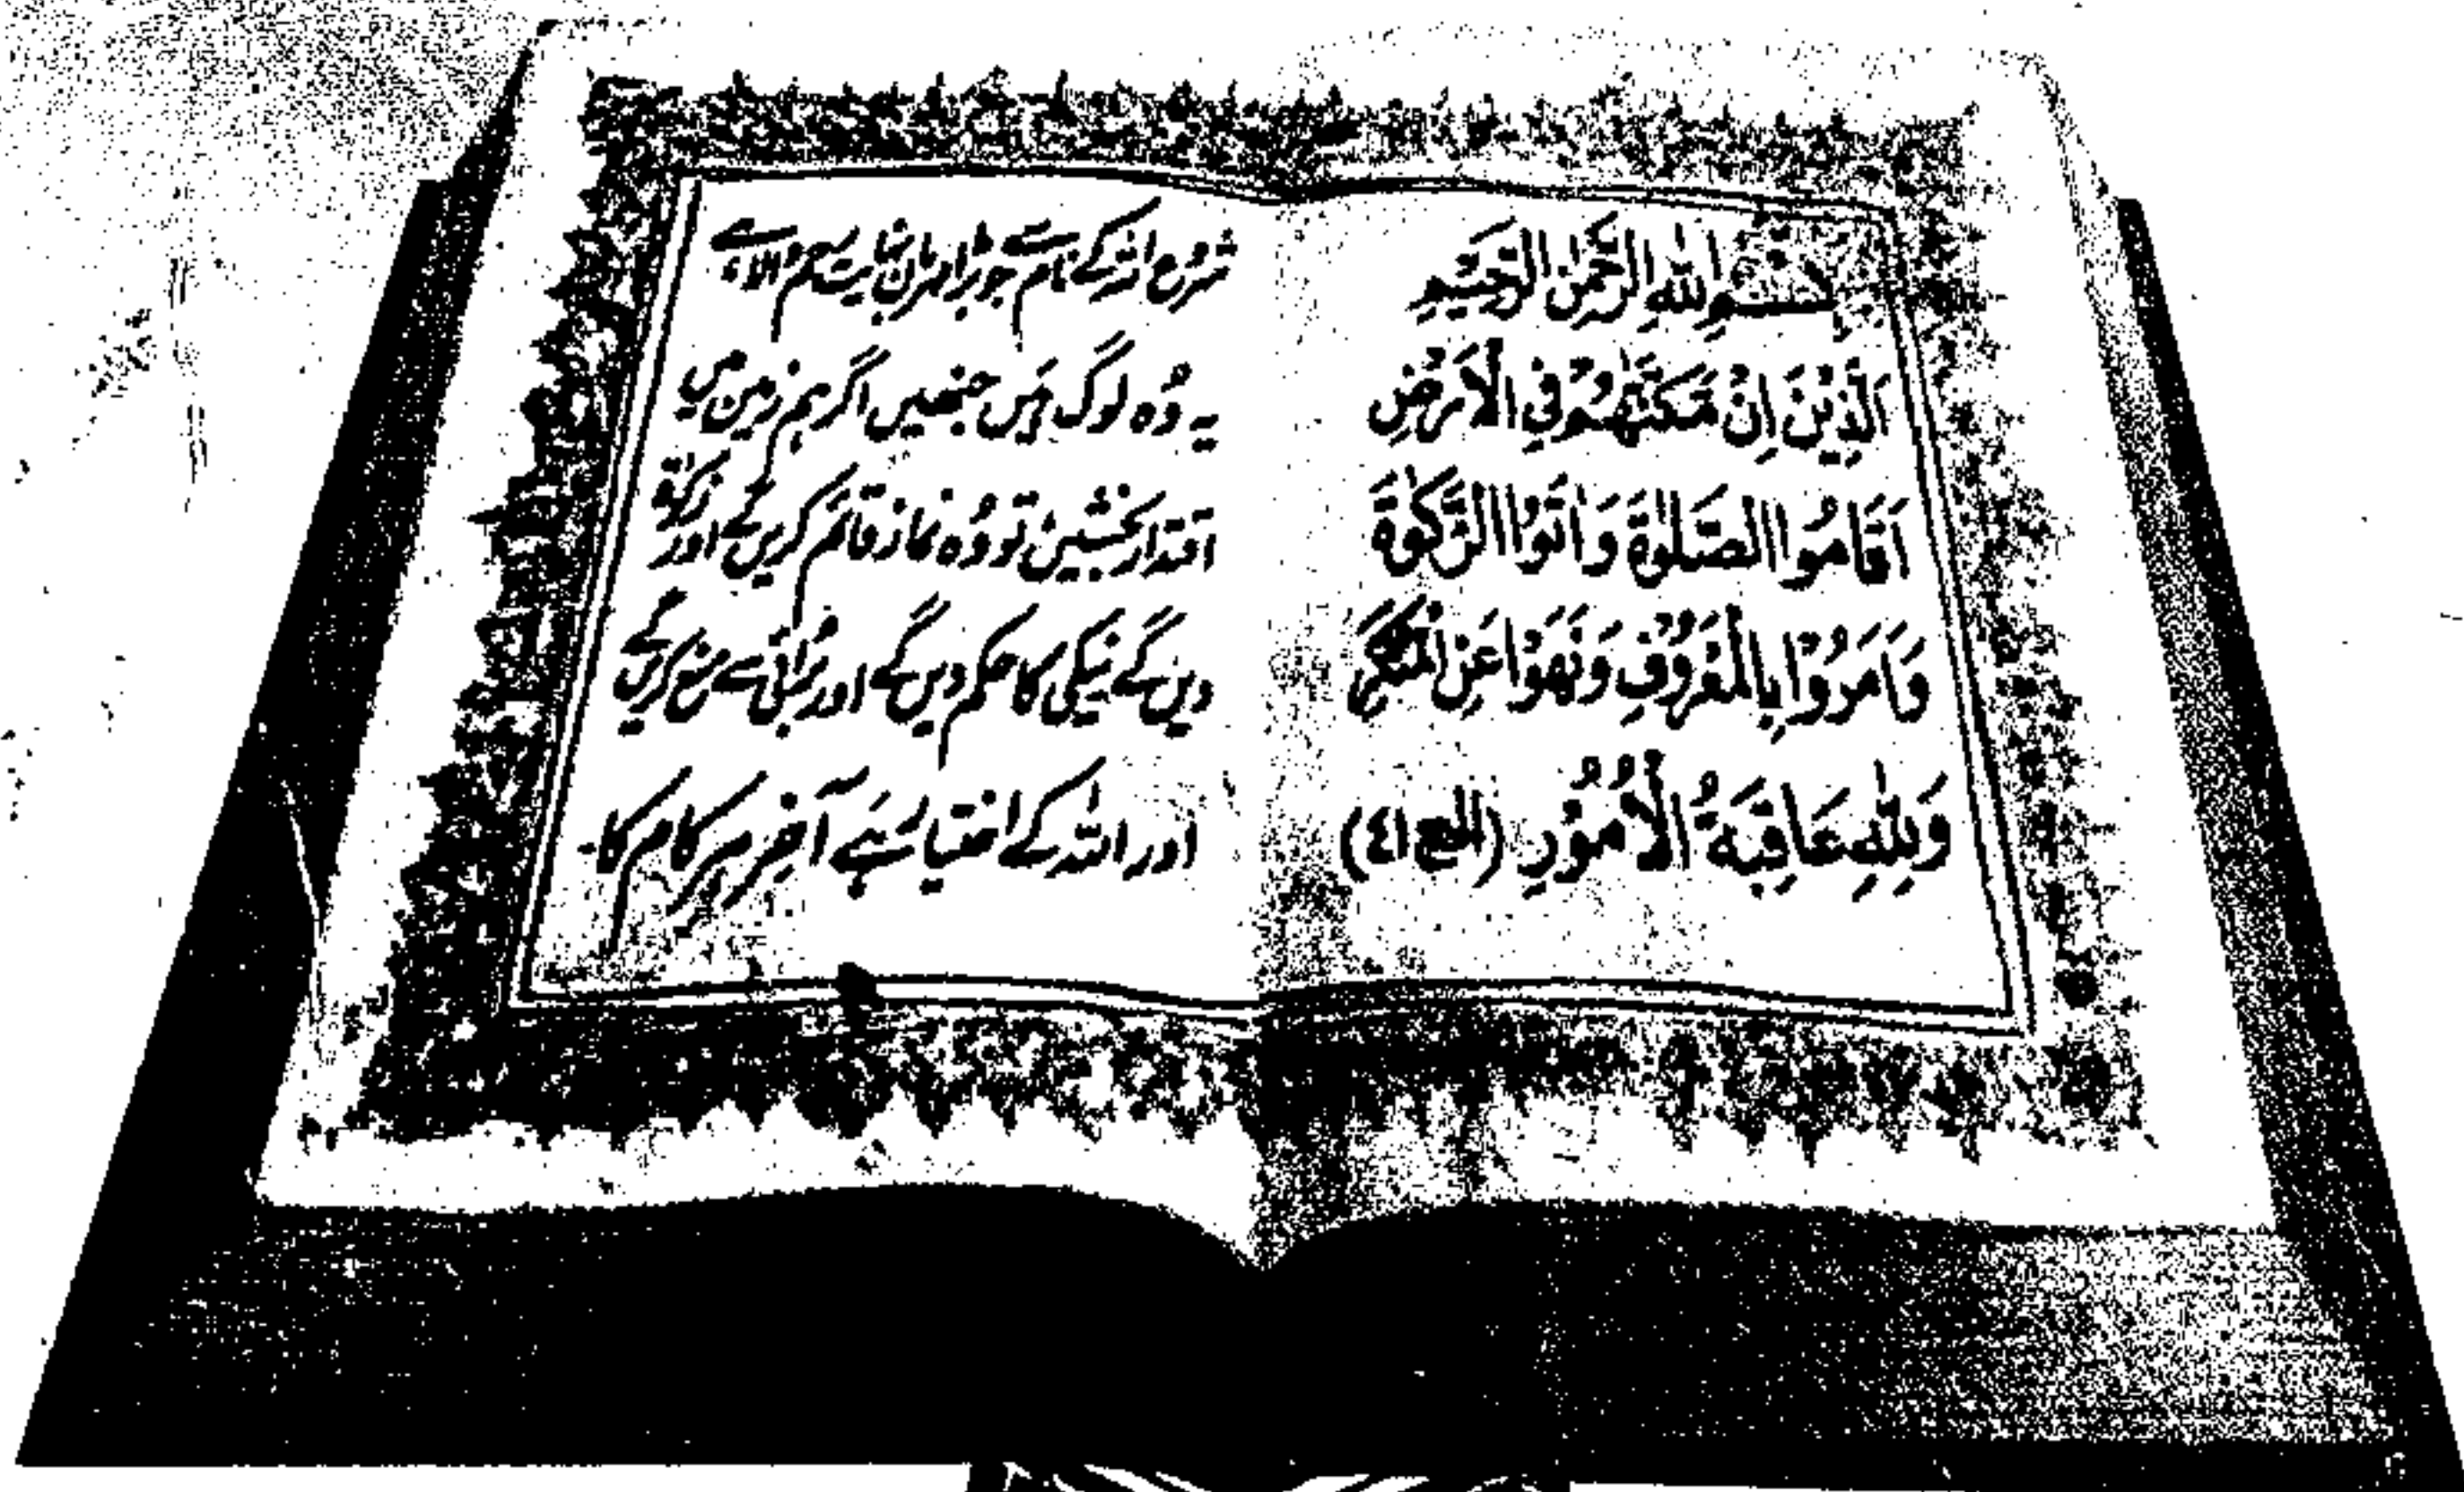 بِسْمِ اللهِ الرَّحْمٰنِ الرَّحِيْمِ
اَلَّذِيْنَ اِنْ مَّكَّنّٰهُمْ فِي الْاَرْضِ
اَقَامُوا الصَّلٰوةَ وَاٰتَوُا الزَّكٰوةَ
وَاَمَرُوْا بِالْمَعْرُوْفِ وَنَهَوْا عَنِ الْمُنْكَرِ
وَلِلّٰهِ عَاقِبَةُ الْاُمُوْرِ (الحج ٤١)
شروع اللہ کے نام سے جو بڑا مہربان نہایت رحم والا ہے
یہ وُہ لوگ ہَیں جنھیں اگر ہم زمین میں
اقتدار بخشیں تو وُہ نماز قائم کریں گے اور زکوٰۃ
دیں گے نیکی کا حکم دیں گے اور بُرائی سے منع کریں گے
اور اللہ کے اختیار ہَے آخِر ہر کام کا۔